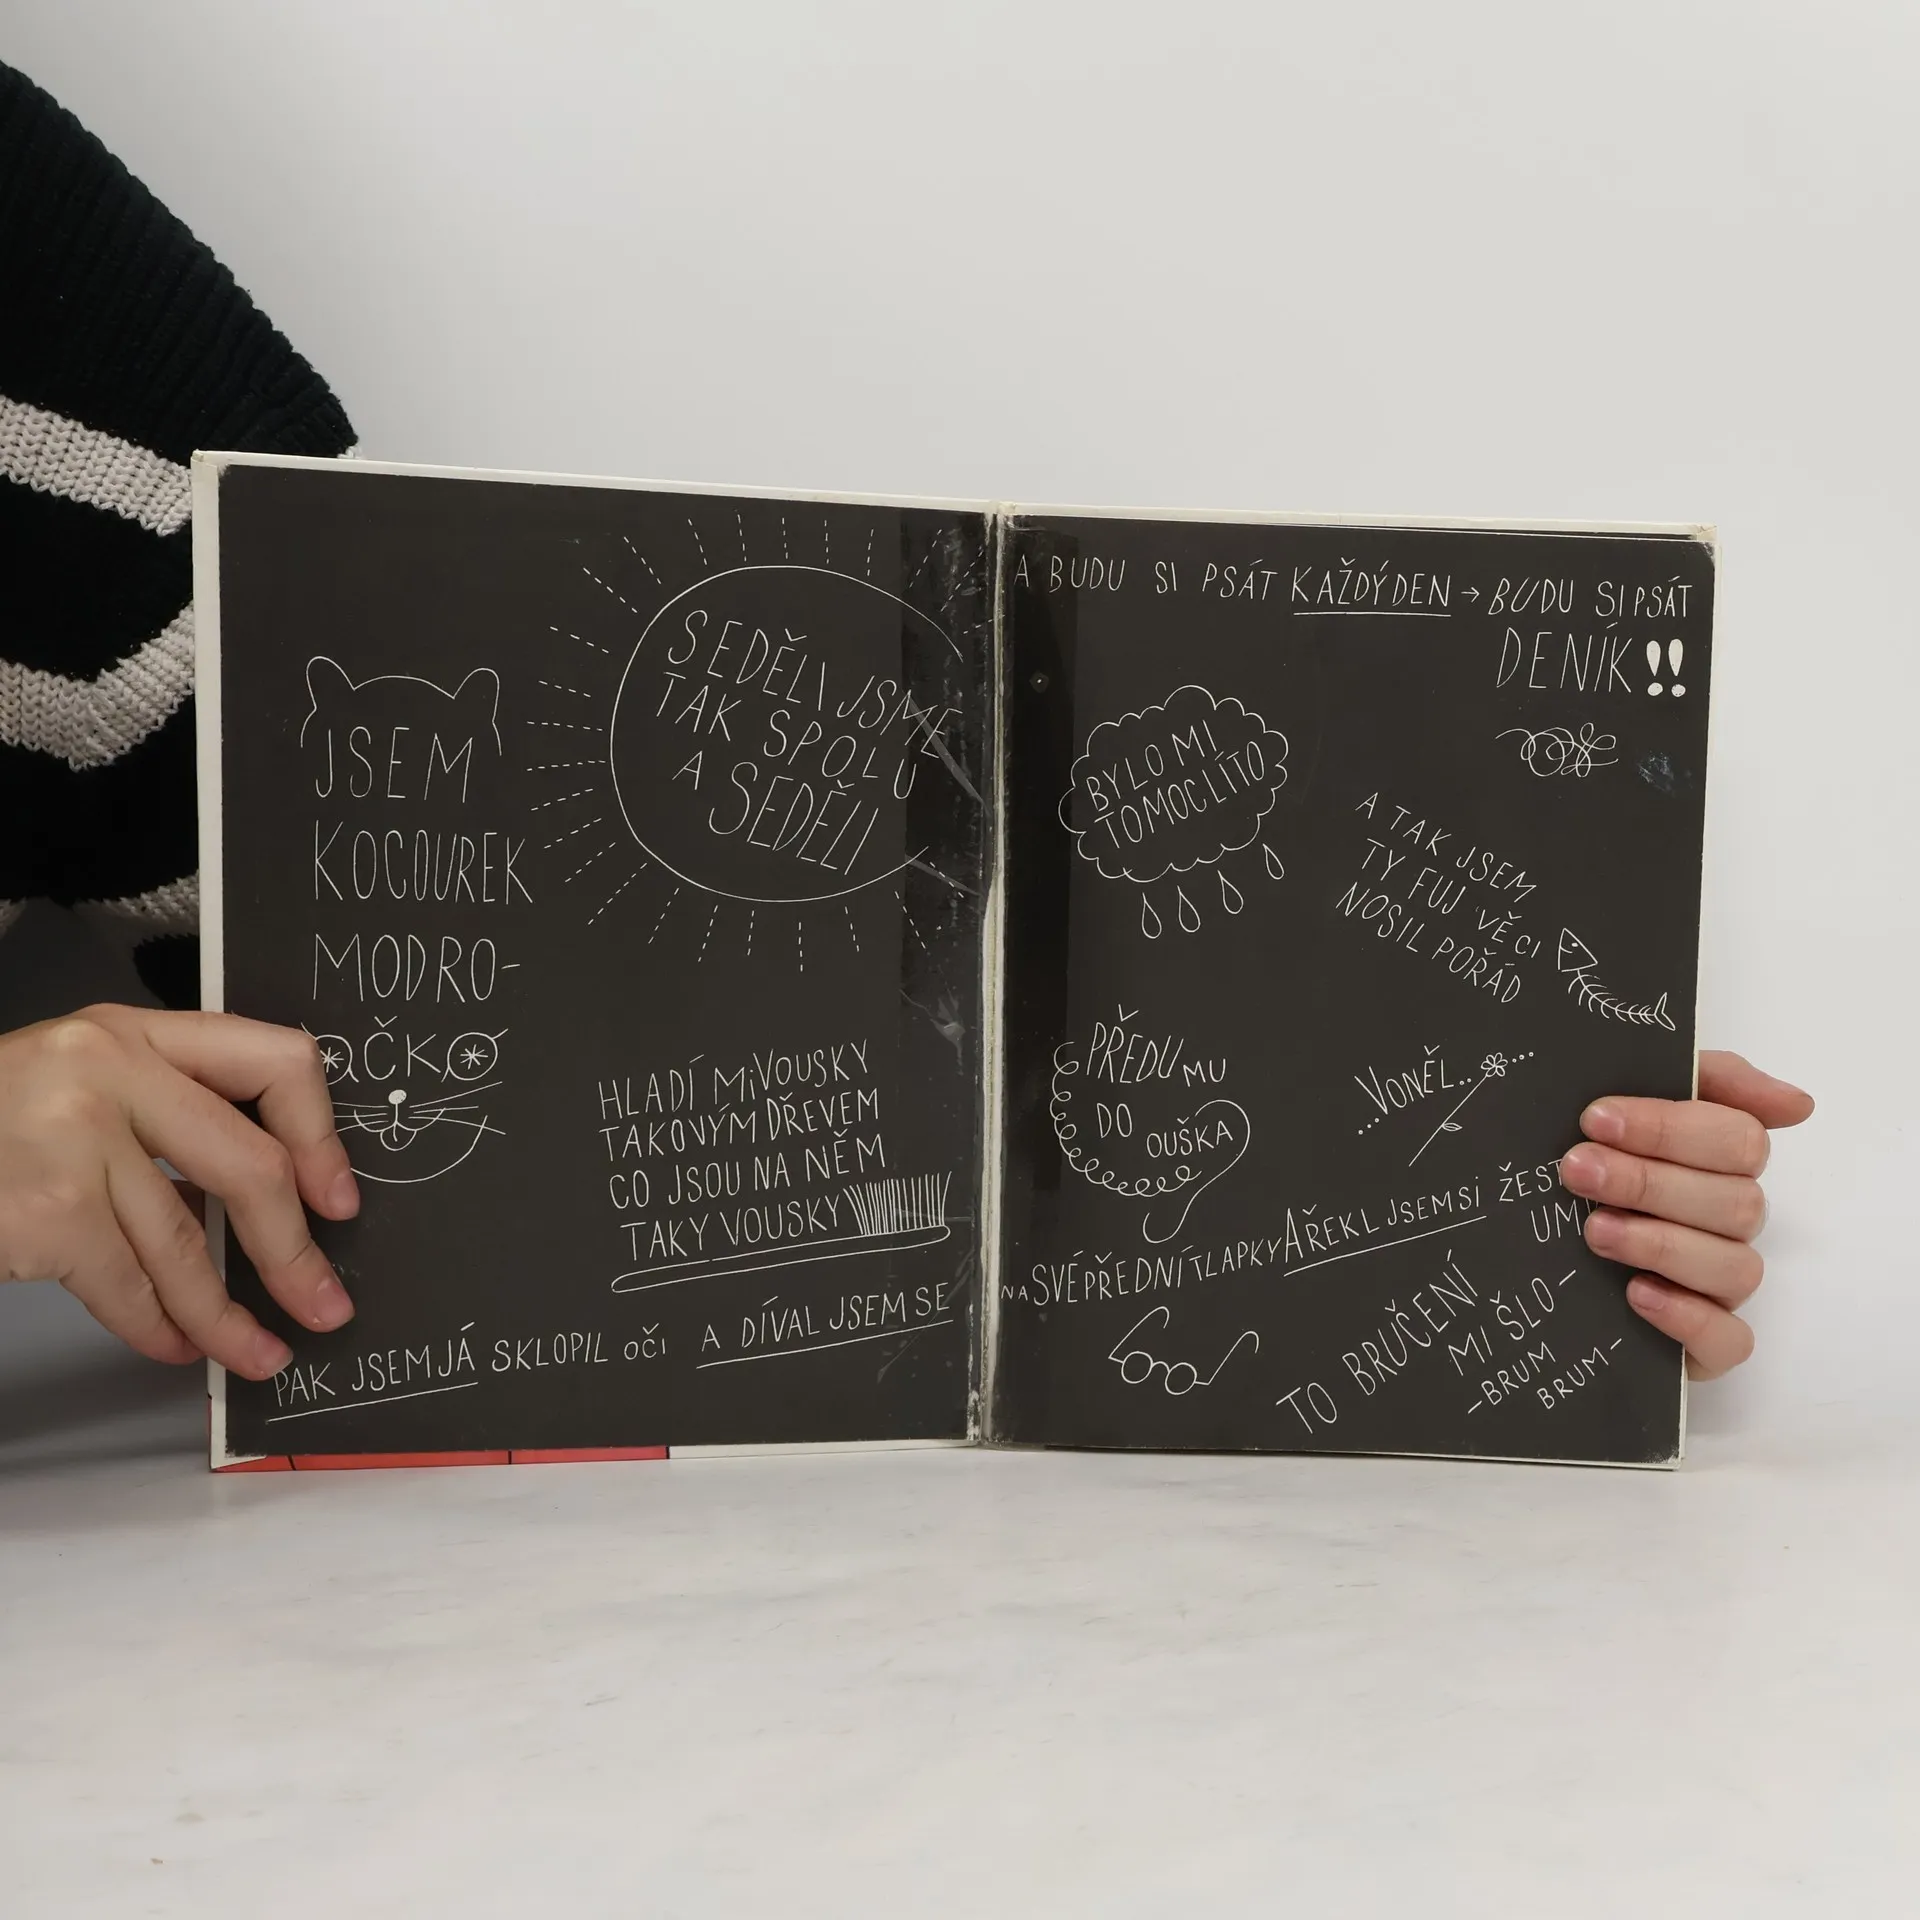 JSEM
KOCOUREK
MODRO-
OČKO
SEDĚLI JSME
TAK SPOLU
A SEDĚLI
HLADÍ Mi VOUSKY
TAKOVÝM DŘEVEM
CO JSOU NA NĚM
TAKY VOUSKY
PAK JSEM JÁ SKLOPIL OČI A DÍVAL JSEM SE
A BUDU SI PSÁT KAŽDÝ DEN → BUDU SI PSÁT
DENÍK!!
BYLO MI
TO MOC LÍTO
A TAK JSEM
TY FUJ VĚCI
NOSIL POŘÁD
PŘEDU MU
DO
OUŠKA
...VONĚL.. ...
NA SVÉ PŘEDNÍ TLAPKY A ŘEKL JSEM Si
TO BRUČENÍ
MI ŠLO-
-BRUM
BRUM-